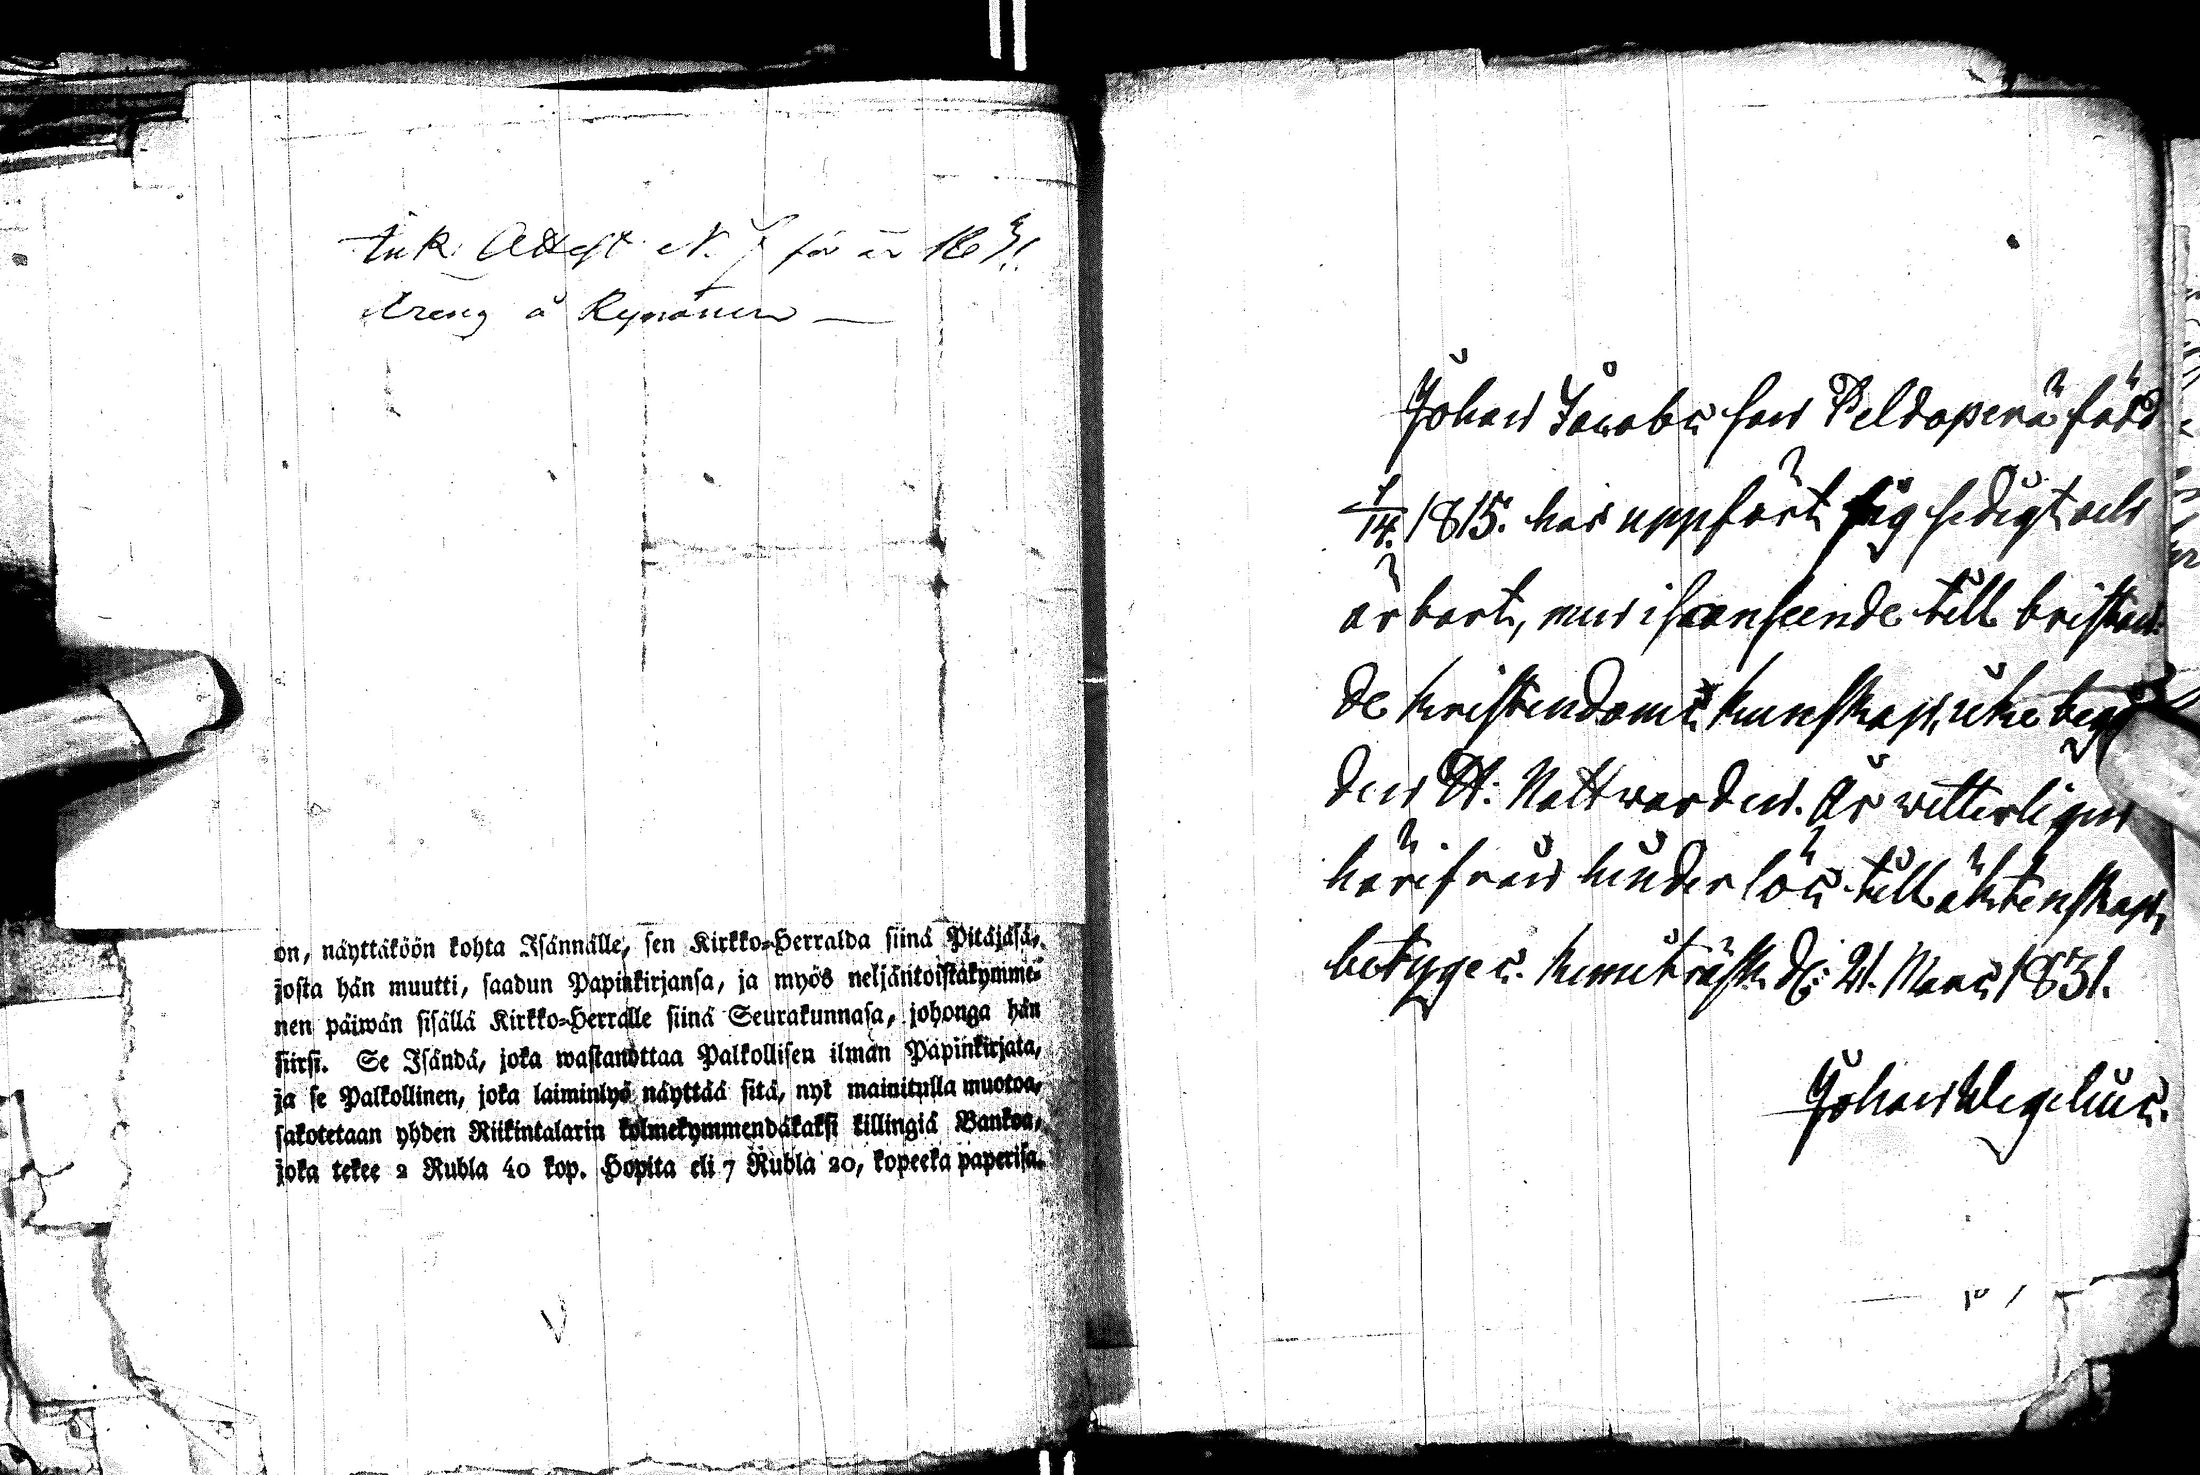 Ink: Attest N. 7 för år 1831.
dreng å Kynönen
on, näyttäköön kohta Isännälle, sen Kirkko-Herralda siinä Pitäjäsä,
josta hän muutti, saadun Papinkirjansa, ja myös neljäntoistakymme-
nen päiwän sisällä Kirkko-Herralle siinä Seurakunnasa, johonga hän
siirsi. Se Isändä, joka wastanottaa Palkollisen ilman Papinkirjata,
ja se Palkollinen, joka laiminlyö näyttää sitä, nyt mainitulla muotoa,
sakotetaan yhden Riikintalarin kolmekymmendäkaksi killingiä Bankoa,
joka tekee 2 Rubla 40 kop. Hopita eli 7 Rubla 20, kopeeka paperisa.
Johan Jacobs son Peldoperä född
1/14. 1815. har uppfört sig sedigt och
ärbart, men i anseende till bristan-
de kristendoms kunskap, icke begått
den H: Nattvarden. Är vetterligen
härifrån hinderlös till äktenskap,
betyges. Kemiträsk d: 21. Mars 1831.
Johan Wegelius.